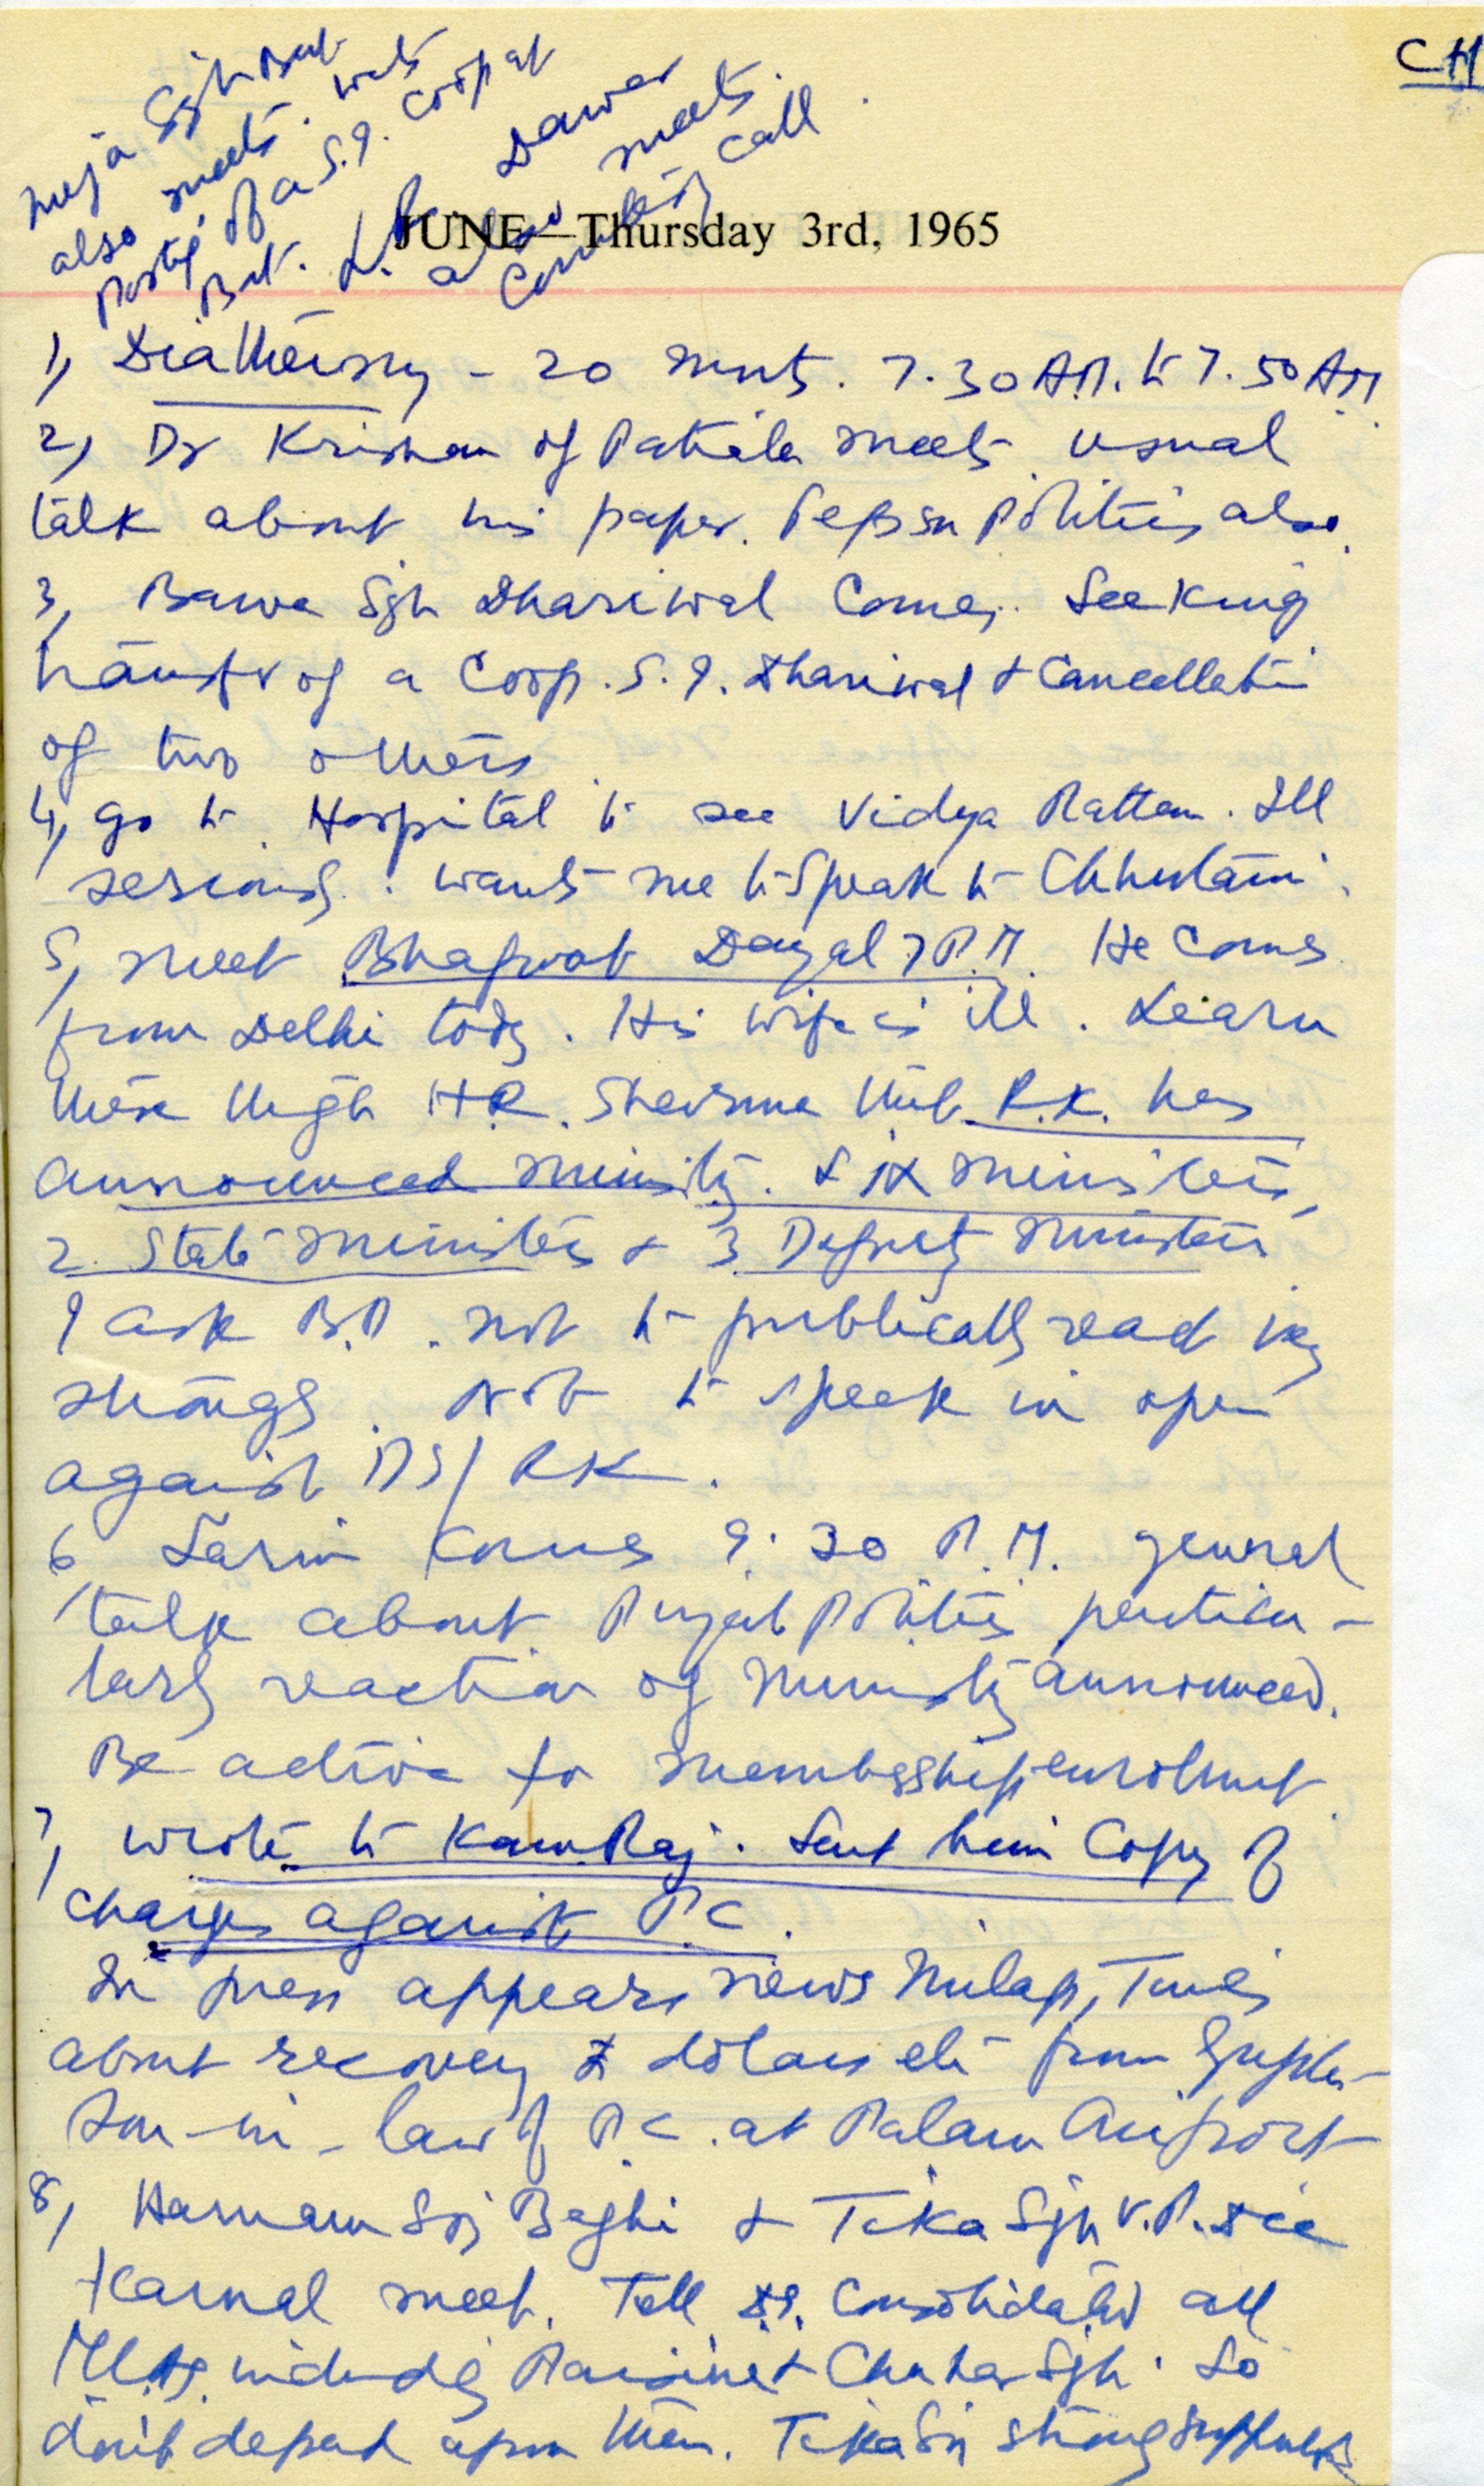 CH
Sgh Bat
also meets. wants
posting of a S.I. Coop at
Bat. L.R. Dawar
also meets.
Courtesy call
JUNE—Thursday 3rd, 1965
1, Diathermy - 20 mnts. 7.30 A.M. to 7.50 A.M.
2, Dr Krishan of Patiala meets usual
talk about his paper. Pepsu Politics also.
3, Bawa Sgh Dhariwal Comes. Seeking
transfer of a Coop. S.I. Dhariwal & Cancellation
of two others
4, go to Hospital to see Vidya Rattan. Ill
seriously. wants me to speak to Chhutani.
5, meet Bhagwat Dayal 7 P.M. He Comes
from Delhi today. His wife is ill. Learn
there through H.R. Sharma that R.K. has
announced ministry. Six ministers,
2 State ministers & 3 Deputy ministers
I ask B.D. not to publically react very
strongly. Not to speak in open
against DS/RK.
6, Sarin comes 9.30 P.M. general
talk about Punjab Politics particu-
larly reaction of ministry announced.
Be active for membership enrolment.
7, wrote to KamRaj. Sent him Copy of
charges against P.C.
In press appears news Milap, Times
about recovery of dolars etc from Gupta
Son-in-law of P.C. at Palam Airport
8, Harnam Sgh Baghi & Teka Sgh V.P.
Karnal meet. Tell Consolidated all
MLAs including & Chuhar Sgh. So
don't depend upon them. Teka Sgh strong